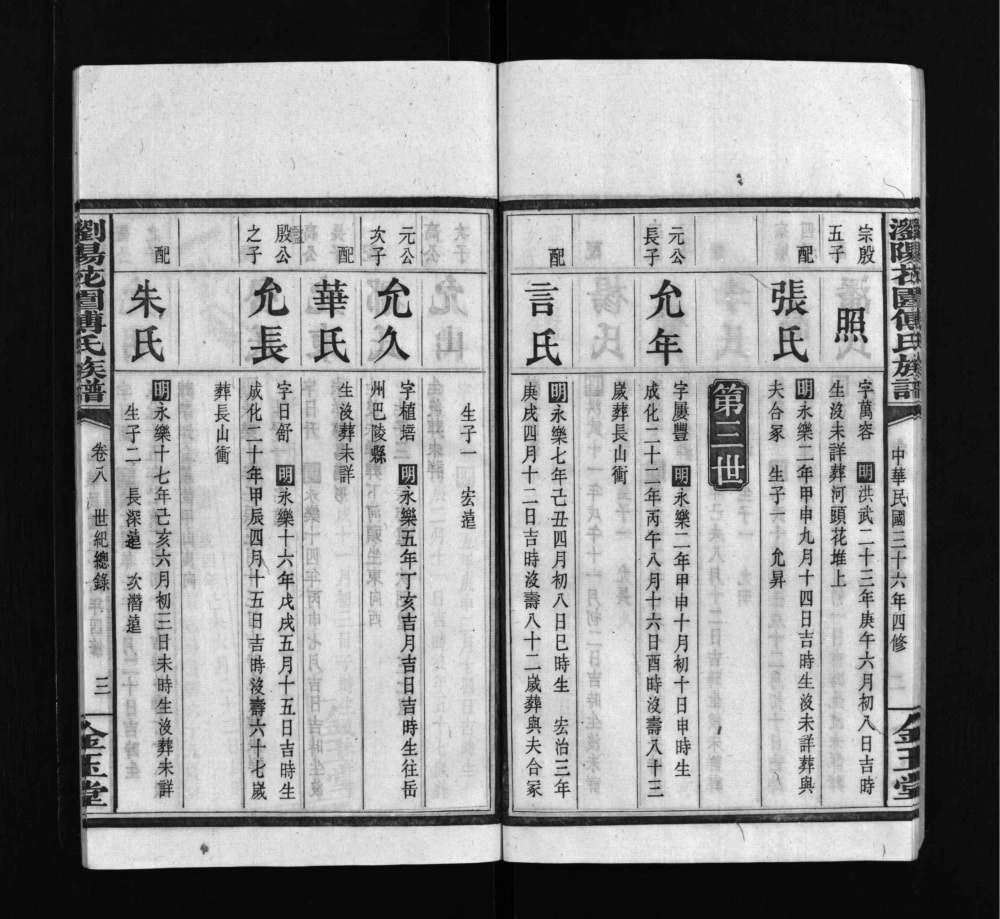 瀏陽花園傅氏族譜
中華民國三十六年四修
金玉堂
宗殷
五子
照
字萬容 明洪武二十三年庚午六月初八日吉時
生沒未詳葬河頭花堆上
配
張氏
明永樂二年甲申九月十四日吉時生沒未詳葬與
夫合冢 生子一 允昇
第三世
元公
長子
允年
字屢豐 明永樂二年甲申十月初十日申時生
成化二十二年丙午八月十六日酉時沒壽八十三
歲葬長山衝
配
言氏
明永樂七年己丑四月初八日巳時生 宏治三年
庚戌四月十二日吉時沒壽八十二歲葬與夫合冢
生子一 宏遠
元公
次子
允久
字植培 明永樂五年丁亥吉月吉日吉時生往岳
州巴陵縣
配
華氏
生沒葬未詳
殷公
之子
允長
字日舒 明永樂十六年戊戌五月十五日吉時生
成化二十年甲辰四月十五日吉時沒壽六十七歲
葬長山衝
配
朱氏
明永樂十七年己亥六月初三日未時生沒葬未詳
生子二 長深遠 次潛遠
瀏陽花園傅氏族譜
卷八 世紀總錄
三
金玉堂